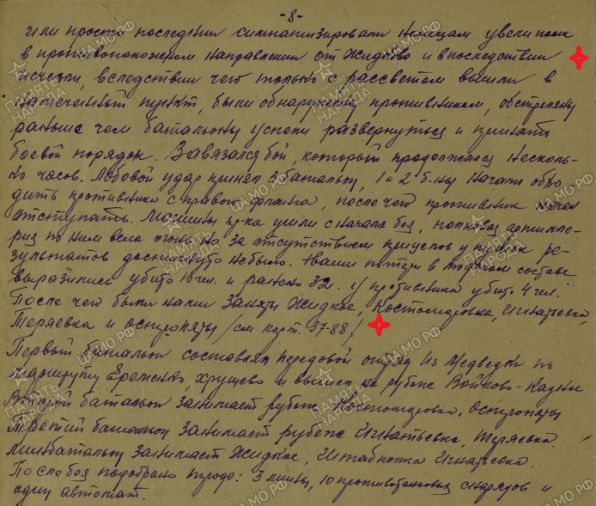 -8-
или просто последний симпатизировали немцам увели полк
в противоположном направлении от Жидково и впоследствии
исчезли, вследствии чего только с рассветом вышли в
намеченный пункт, были обнаружены противником, обстреляны
раньше чем батальоны успели развернуться и принять
боевой порядок. Завязался бой, который продолжался несколь-
ко часов. Лобовой удар принял 3 батальон, 1 и 2 б-ны начали обхо-
дить противника с правого фланга, после чего противник начал
отступать. Машины пр-ка ушли с начала боя, полковая артилле-
рия по ним вела огонь, но за отсутствием прицелов у пушек ре-
зультатов достигнуто не было. Наши потери в людском составе
выразились убито 10 чел. и ранено 32. у противника убито 4 чел.
После чего были нами заняты Жидкое, Костомаровка, Игнатьевка,
Теряевка и /см карт. 37-88/
Первый батальон составлял передовой отряд из Медведки по
маршруту Еремеево, Хрущево и вышел на рубеж
Второй батальон занимает рубеж Костомаровка,
Третий батальон занимает рубеж Игнатьевка, Теряевка.
занимает Жидкое, Штаб полка Игнатьевка.
После боя подобрано трофеи: 3 мины, 10 противотанковых снарядов и
один автомат.
ПАМЯТЬ НАРОДА
ЦАМО РФ